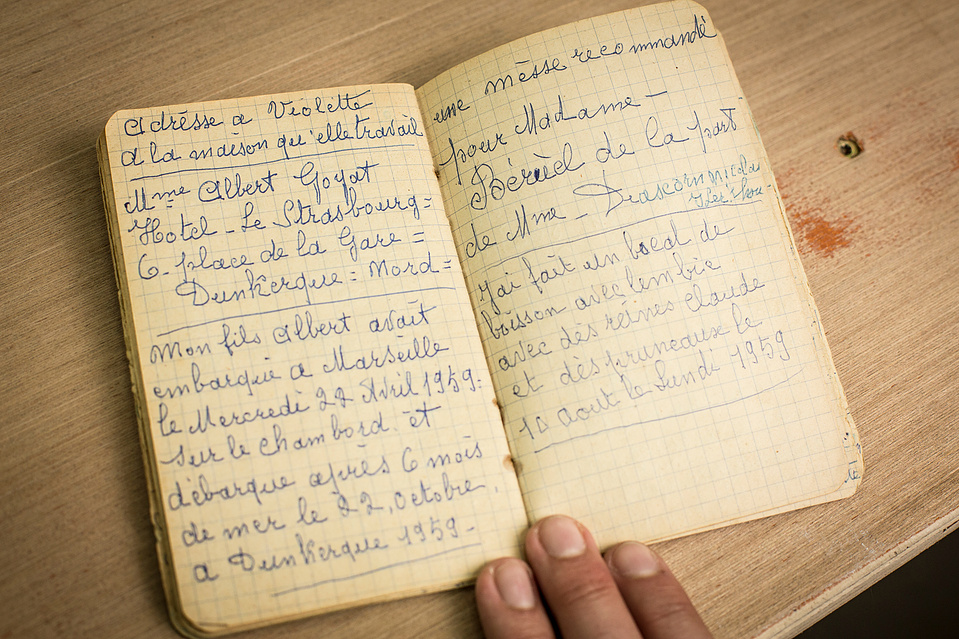 adrésse a Violette
a la maison qu'elle travail
Mme Albert Goyat
Hotel - Le Strasbourg =
6 - place de la Gare =
Dunkerque = Nord =
Mon fils Albert avait
embarqué a Marseille
le Mercredi 22 Avril 1959 =
sur le chambord. ét
débarque après 6 mois
de mer le 22, octobre,
a Dunkerque 1959 -
une mèsse recommandé
pour Madame -
de la part
de Mme -
J'ai fait un bocal de
boisson avec
avec dès reines Claude
et dès pruneause le
10 aout le Lundi 1959